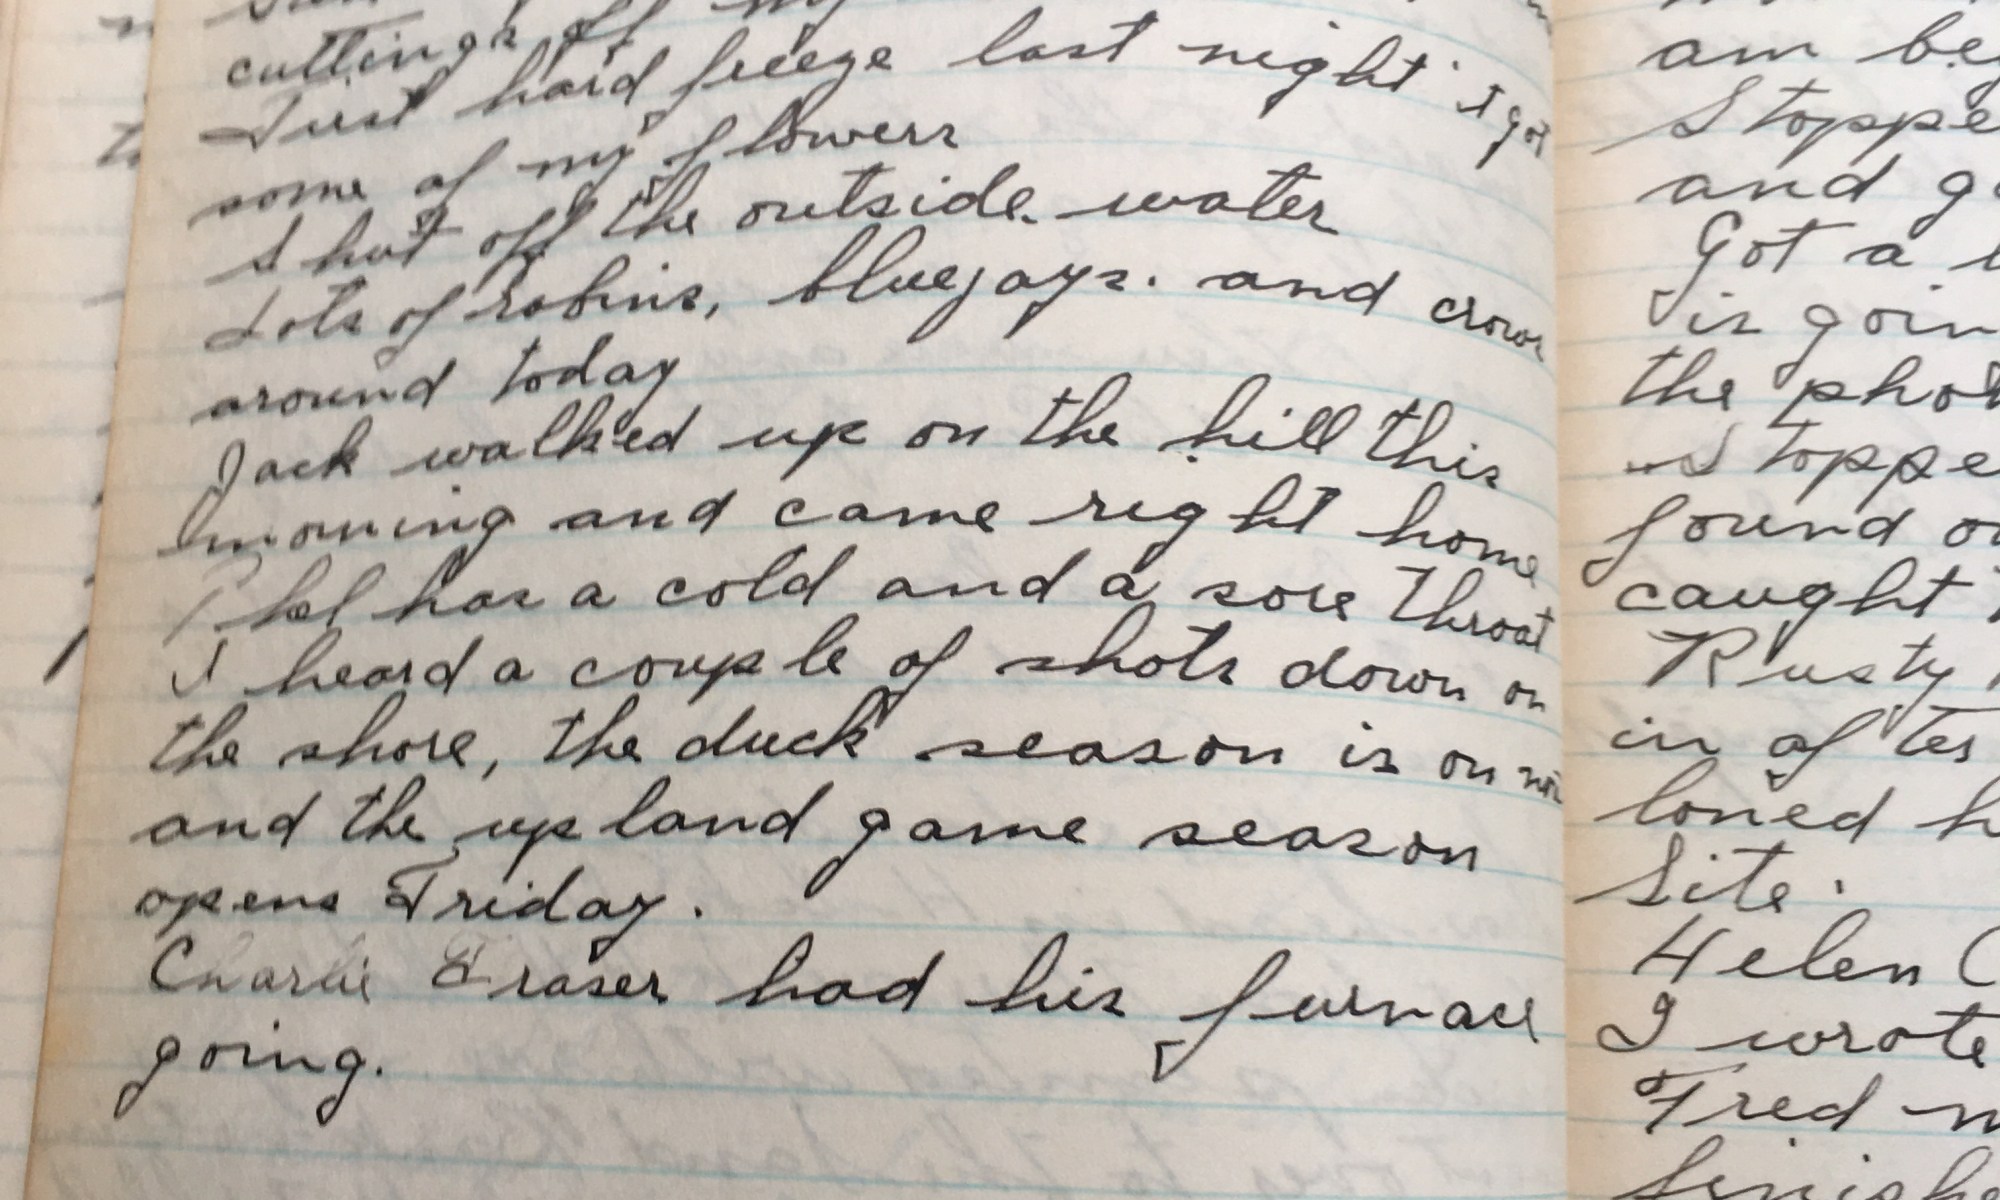 cuttings off my
First hard freeze last night I got
some of my flowers
Shut off the outside water
Lots of robins, bluejays. and crows
around today
Jack walked up on the hill this
morning and came right home
Phel has a cold and a sore throat
I heard a couple of shots down on
the shore, the duck season is on now
and the upland game season
opens Friday.
Charlie Fraser had his furnace
going.
am be
Stoppe
and g
Got a
is goin
the phot
Stoppe
found o
caught
Rusty
in after
loned h
Site.
Helen C
I wrote
Fred
finishe